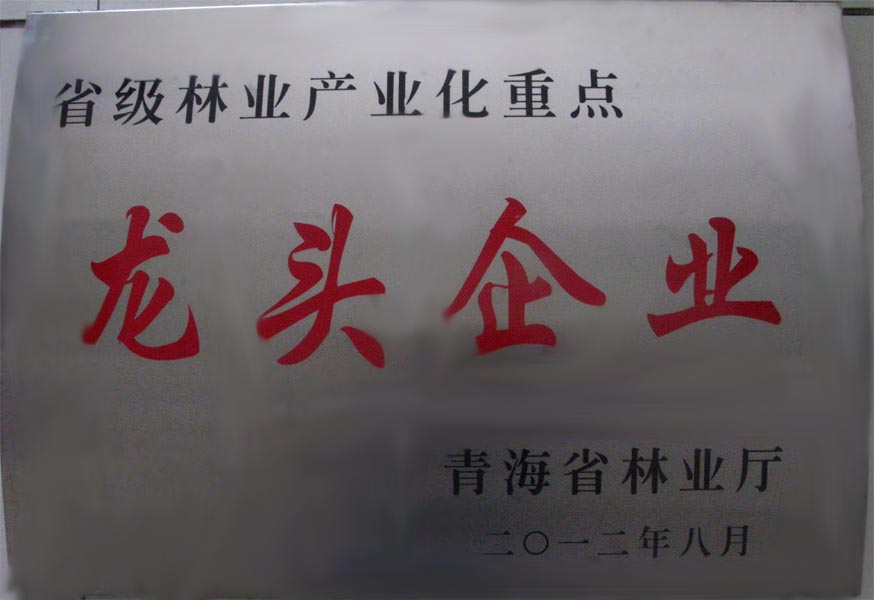 省级林业产业化重点
龙头企业
青海省林业厅
二〇一二年八月